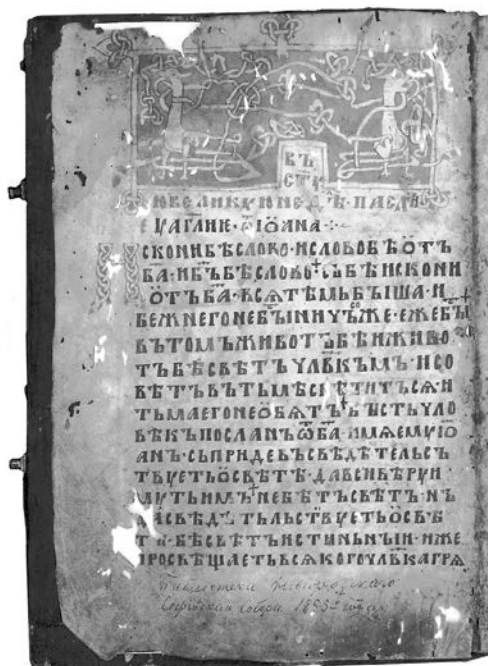 ВЪ
СТ҃Ꙋ
Ю ВЕЛИКꙊЮ НЕД҃Ѣ ПАСХꙊ
ЕУАГ҃ЛИЕ · Ѿ ІОАНА ·:·
ИСКОНИ БѢ СЛОВО · И СЛОВО БѢ ОТЪ
Б҃А · И Б҃Ъ БѢ СЛОВО + СЬ БѢ ИСКОНИ
ОТЪ Б҃А · ВСѦ ТѢМЬ БЫША · И
БЕЖ НЕГО НЕ БЫ НИЧЬЖЕ · ЕЖЕ БЫ
ВЪ ТОМЪ ЖИВОТЪ БѢ И ЖИВО
ТЪ БѢ СВѢТЪ ЧЛ҃ВКМЪ · И СО
ВѢТЪ ВЪ ТЬМѢ СВѢТИТЬСѦ · И
ТЬМА ЕГО НЕ ОБѦТЪ + БЫСТЬ ЧЛО
ВѢКЪ ПОСЛАНЪ Ѿ Б҃А · ИМѦ ЕМꙊ ІО
АНЪ · СЬ ПРИДЕ ВЪ СВѢДѢТЕЛЬС
ТВꙊЕТЬ О СВѢТѢ · ДА ВСИ ВѢРꙊИ
МꙊТЬ ИМЪ + НЕ БѢ ТЪ СВѢТЪ · НЪ
ДА СВѢДѢТЕЛЬСТВꙊЕТЬ О СВѢ
ТѢ · БѢ СВѢТЪ ИСТИНЬНЫИ · ИЖЕ
ПРОСВѢЩАЕТЬ ВСѦКОГО ЧЛ҃ВКА ГРѦ
Библиотеки Новгородскаго
Софійскаго Собора. 1855го года